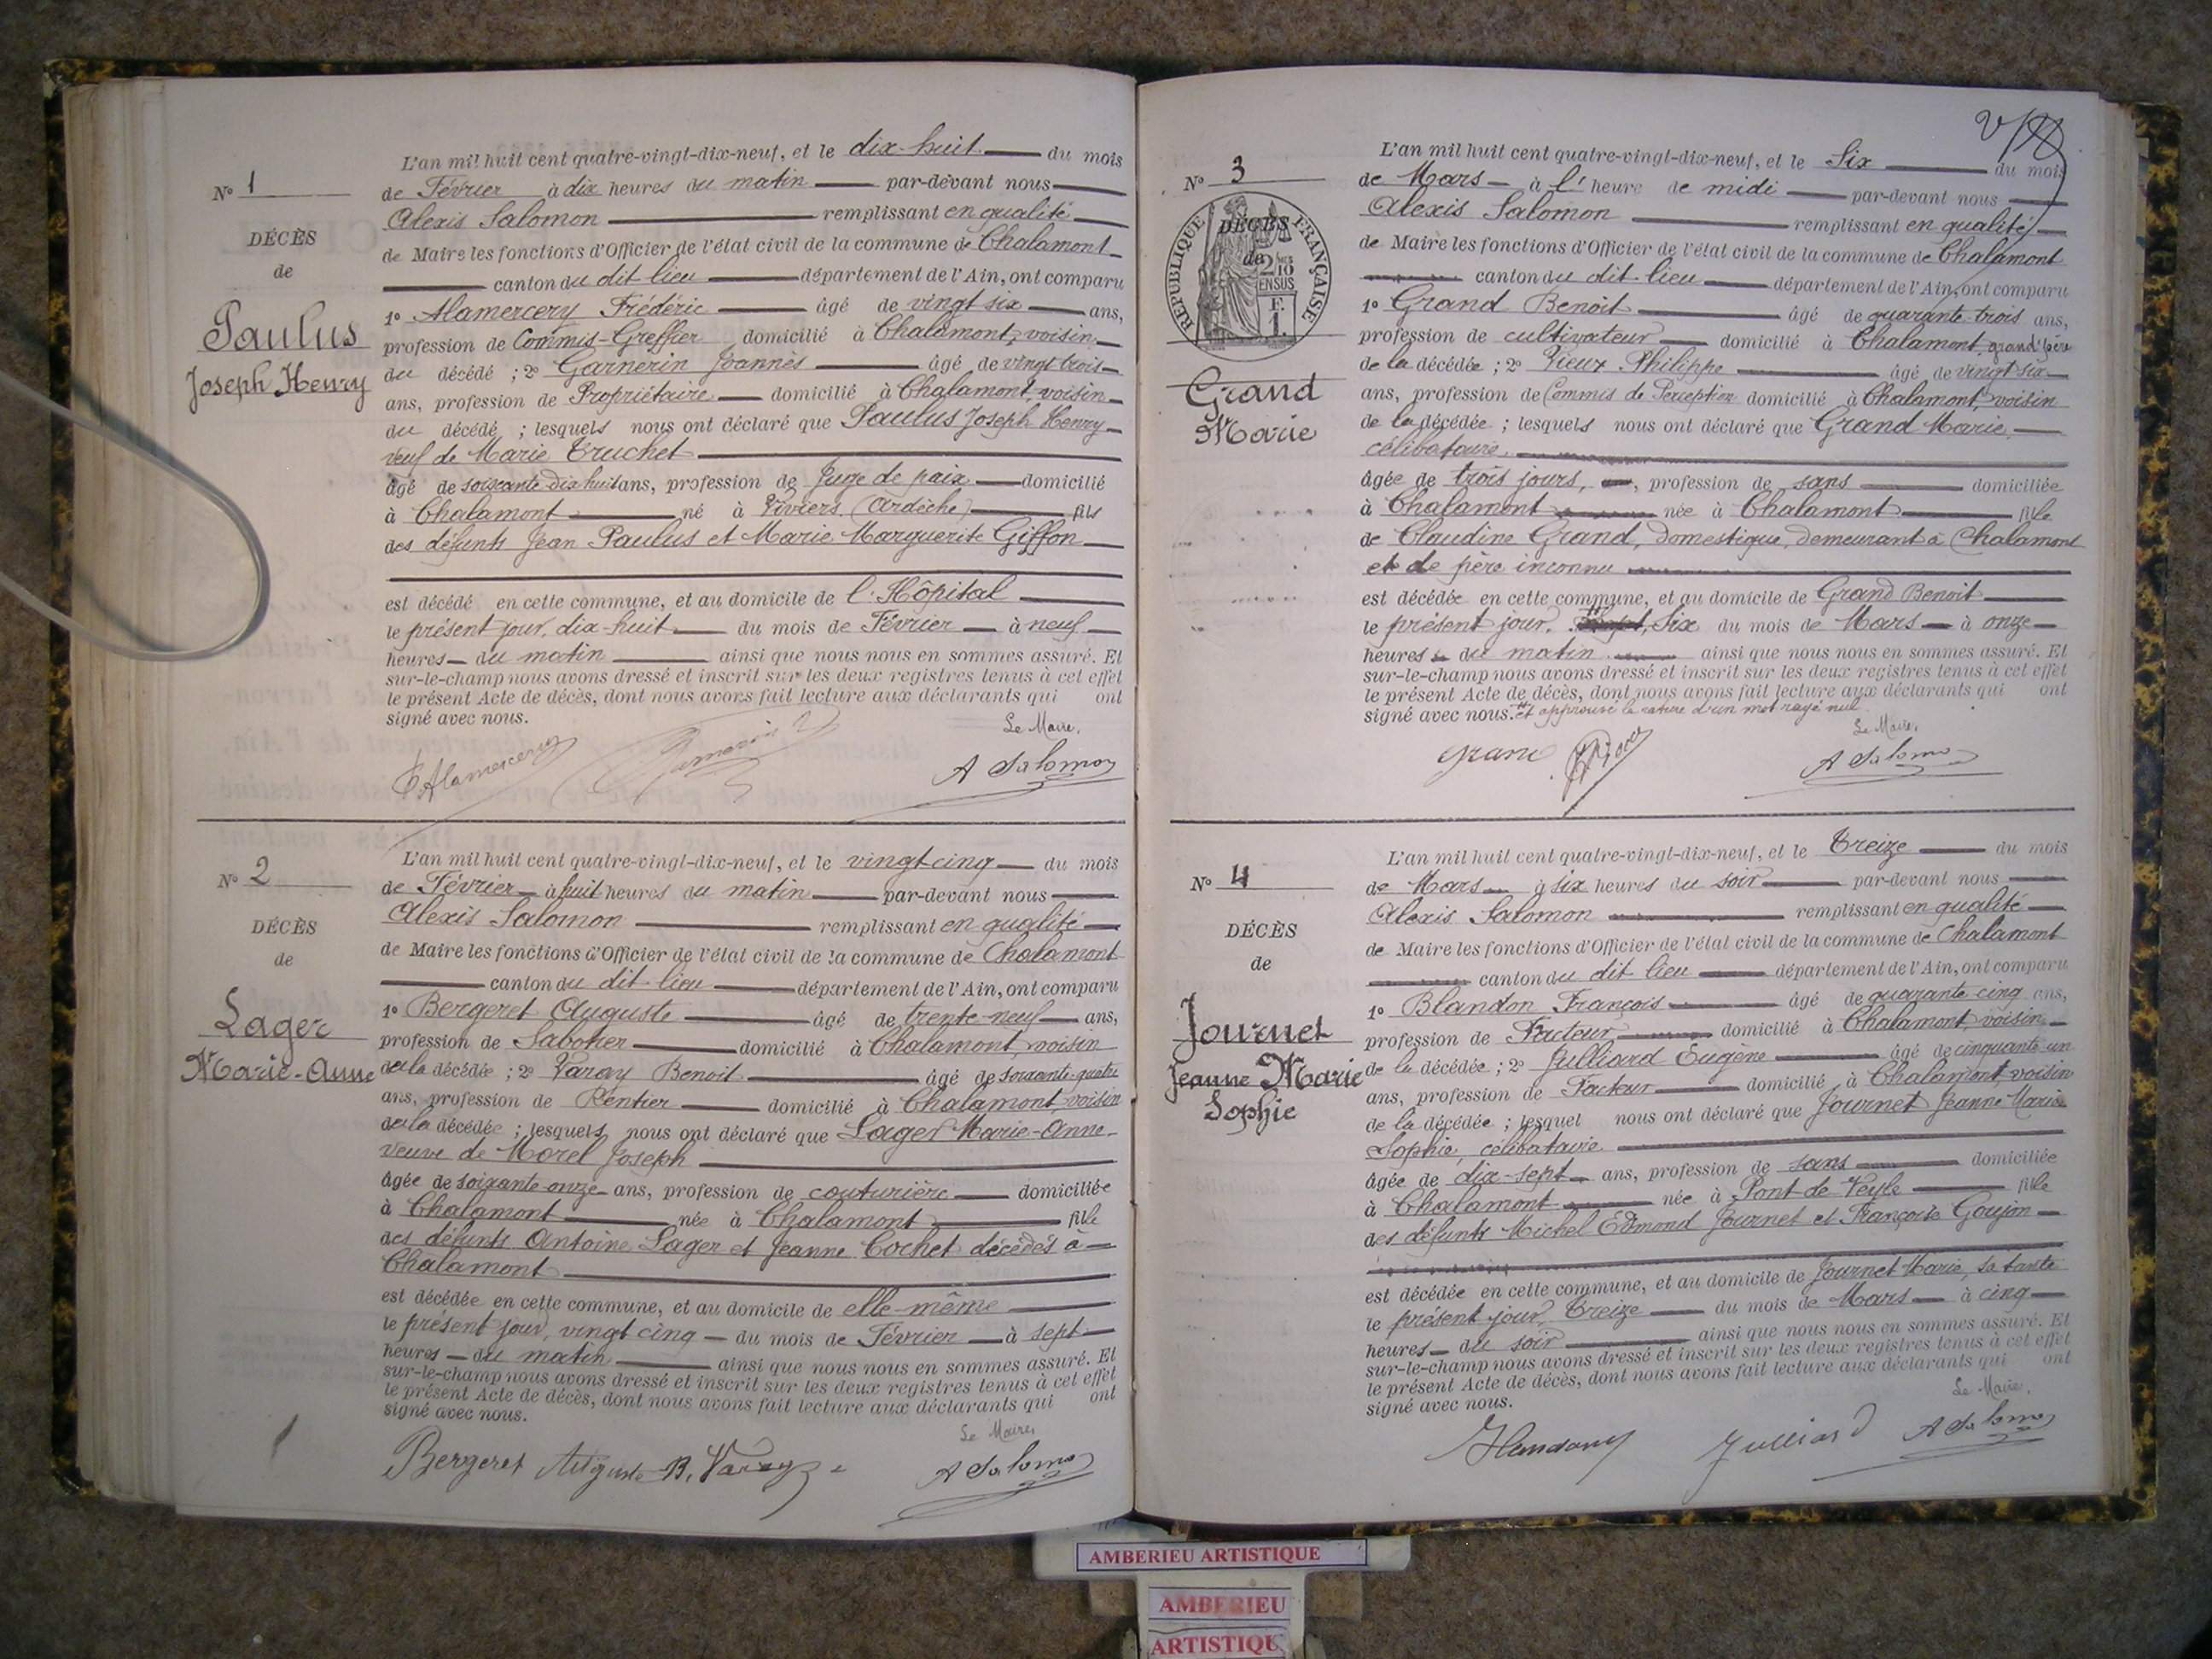 N° 1
DÉCÈS
de
Paulus
Joseph Henry
L'an mil huit cent quatre-vingt-dix-neuf, et le dix-huit du mois
de Février à dix heures du matin par-devant nous
Alexis Salomon remplissant en qualité
de Maire les fonctions d'Officier de l'état civil de la commune de Chalamont
canton du dit lieu département de l'Ain, ont comparu
1° Alamercery Frédéric âgé de vingt six ans,
profession de Commis-Greffier domicilié à Chalamont, voisin
du décédé ; 2° Garnerin Joannès âgé de vingt trois
ans, profession de Propriétaire domicilié à Chalamont, voisin
du décédé ; lesquels nous ont déclaré que Paulus Joseph Henry
veuf de Marie Truchet
âgé de soixante dix huit ans, profession de Juge de paix domicilié
à Chalamont né à Viviers (Ardèche) fils
des défunts Jean Paulus et Marie Marguerite Giffon
est décédé en cette commune, et au domicile de l'Hôpital
le présent jour, dix-huit du mois de Février à neuf
heures du matin ainsi que nous nous en sommes assuré. Et
sur-le-champ nous avons dressé et inscrit sur les deux registres tenus à cet effet
le présent Acte de décès, dont nous avons fait lecture aux déclarants qui ont
signé avec nous.
Le Maire,
Alamercery Garnerin A Salomon
N° 2
DÉCÈS
de
Lager
Marie-Anne
L'an mil huit cent quatre-vingt-dix-neuf, et le vingt cinq du mois
de Février à huit heures du matin par-devant nous
Alexis Salomon remplissant en qualité
de Maire les fonctions d'Officier de l'état civil de la commune de Chalamont
canton du dit lieu département de l'Ain, ont comparu
1° Bergeret Auguste âgé de trente-neuf ans,
profession de Sabotier domicilié à Chalamont, voisin
de la décédée ; 2° Varay Benoit âgé de soixante-quatre
ans, profession de Rentier domicilié à Chalamont, voisin
de la décédée ; lesquels nous ont déclaré que Lager Marie-Anne
veuve de Morel Joseph
âgée de soixante-onze ans, profession de couturière domiciliée
à Chalamont née à Chalamont fille
des défunts Antoine Lager et Jeanne Cochet décédés à
Chalamont
est décédée en cette commune, et au domicile de elle-même
le présent jour, vingt cinq du mois de Février à sept
heures du matin ainsi que nous nous en sommes assuré. Et
sur-le-champ nous avons dressé et inscrit sur les deux registres tenus à cet effet
le présent Acte de décès, dont nous avons fait lecture aux déclarants qui ont
signé avec nous.
Le Maire,
Bergeret Auguste B. Varay A Salomon
N° 3
DÉCÈS
de
RÉPUBLIQUE FRANÇAISE
2/10
EN SUS
F.
1.
Grand
Marie
L'an mil huit cent quatre-vingt-dix-neuf, et le Six du mois
de Mars à l'heure de midi par-devant nous
Alexis Salomon remplissant en qualité
de Maire les fonctions d'Officier de l'état civil de la commune de Chalamont
canton du dit lieu département de l'Ain, ont comparu
1° Grand Benoit âgé de quarante-trois ans,
profession de cultivateur domicilié à Chalamont, grand'père
de la décédée ; 2° Vieux Philippe âgé de vingt six
ans, profession de Commis de Perception domicilié à Chalamont, voisin
de la décédée ; lesquels nous ont déclaré que Grand Marie,
célibataire.
âgée de trois jours, profession de sans domiciliée
à Chalamont née à Chalamont fille
de Claudine Grand, domestique, demeurant à Chalamont
et de père inconnu
est décédée en cette commune, et au domicile de Grand Benoit
le présent jour, Six du mois de Mars à onze
heures du matin ainsi que nous nous en sommes assuré. Et
sur-le-champ nous avons dressé et inscrit sur les deux registres tenus à cet effet
le présent Acte de décès, dont nous avons fait lecture aux déclarants qui ont
signé avec nous. et approuvé la rature d'un mot rayé nul
Le Maire,
Grand A Salomon
N° 4
DÉCÈS
de
Journet
Jeanne Marie
Sophie
L'an mil huit cent quatre-vingt-dix-neuf, et le Treize du mois
de Mars à six heures du soir par-devant nous
Alexis Salomon remplissant en qualité
de Maire les fonctions d'Officier de l'état civil de la commune de Chalamont
canton du dit lieu département de l'Ain, ont comparu
1° Blandon François âgé de quarante cinq ans,
profession de Facteur domicilié à Chalamont, voisin
de la décédée ; 2° Julliard Eugène âgé de cinquante-un
ans, profession de Facteur domicilié à Chalamont, voisin
de la décédée ; lesquel nous ont déclaré que Journet Jeanne Marie
Sophie, célibataire
âgée de dix-sept ans, profession de sans domiciliée
à Chalamont née à Pont-de-Veyle fille
des défunts Michel Edmond Journet et Françoise Goujon
est décédée en cette commune, et au domicile de Journet Marie, sa tante
le présent jour, Treize du mois de Mars à cinq
heures du soir ainsi que nous nous en sommes assuré. Et
sur-le-champ nous avons dressé et inscrit sur les deux registres tenus à cet effet
le présent Acte de décès, dont nous avons fait lecture aux déclarants qui ont
signé avec nous.
Le Maire,
Julliard A Salomon
AMBERIEU ARTISTIQUE
AMBERIEU
ARTISTIQU